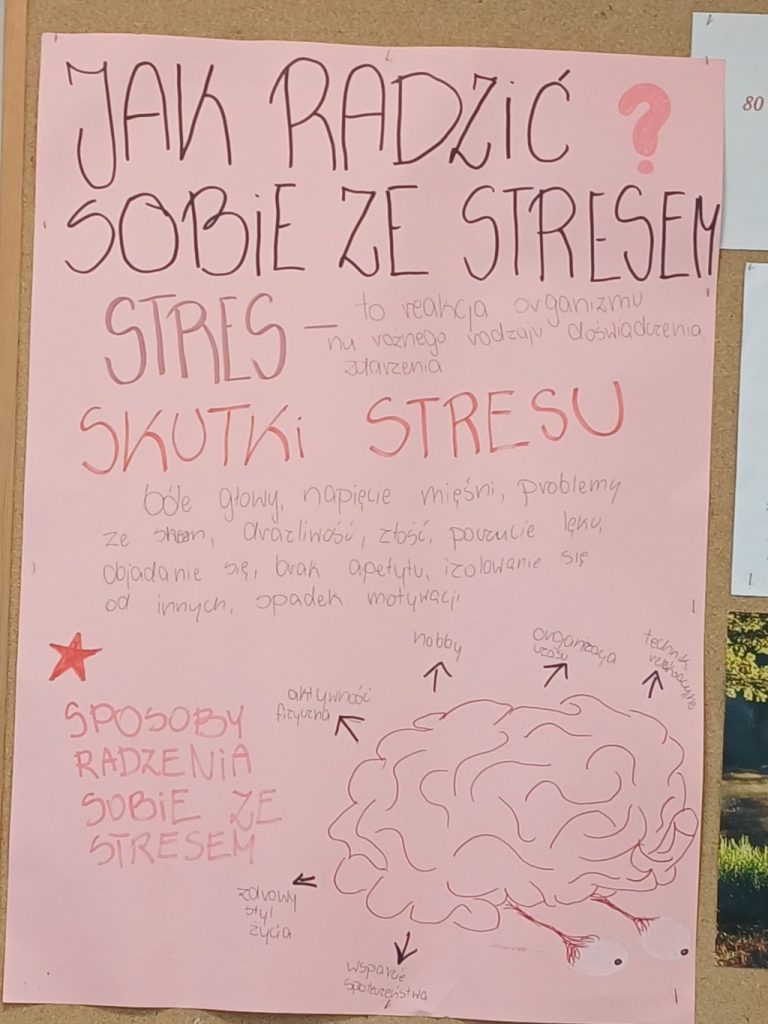 JAK RADZIĆ ?
SOBIE ZE STRESEM
STRES - to reakcja organizmu
na rożnego rodzaju doświadczenia,
zdarzenia
SKUTKI STRESU
bóle głowy, napięcie mięśni, problemy
ze snem, drażliwość, złość, poczucie lęku,
objadanie się, brak apetytu, izolowanie się
od innych, spadek motywacji
hobby
organizacja
czasu
techniki
relaksacyjne
aktywność
fizyczna
SPOSOBY
RADZENIA
SOBIE ZE
STRESEM
zdrowy
styl
życia
wsparcie
społeczeństwa
80